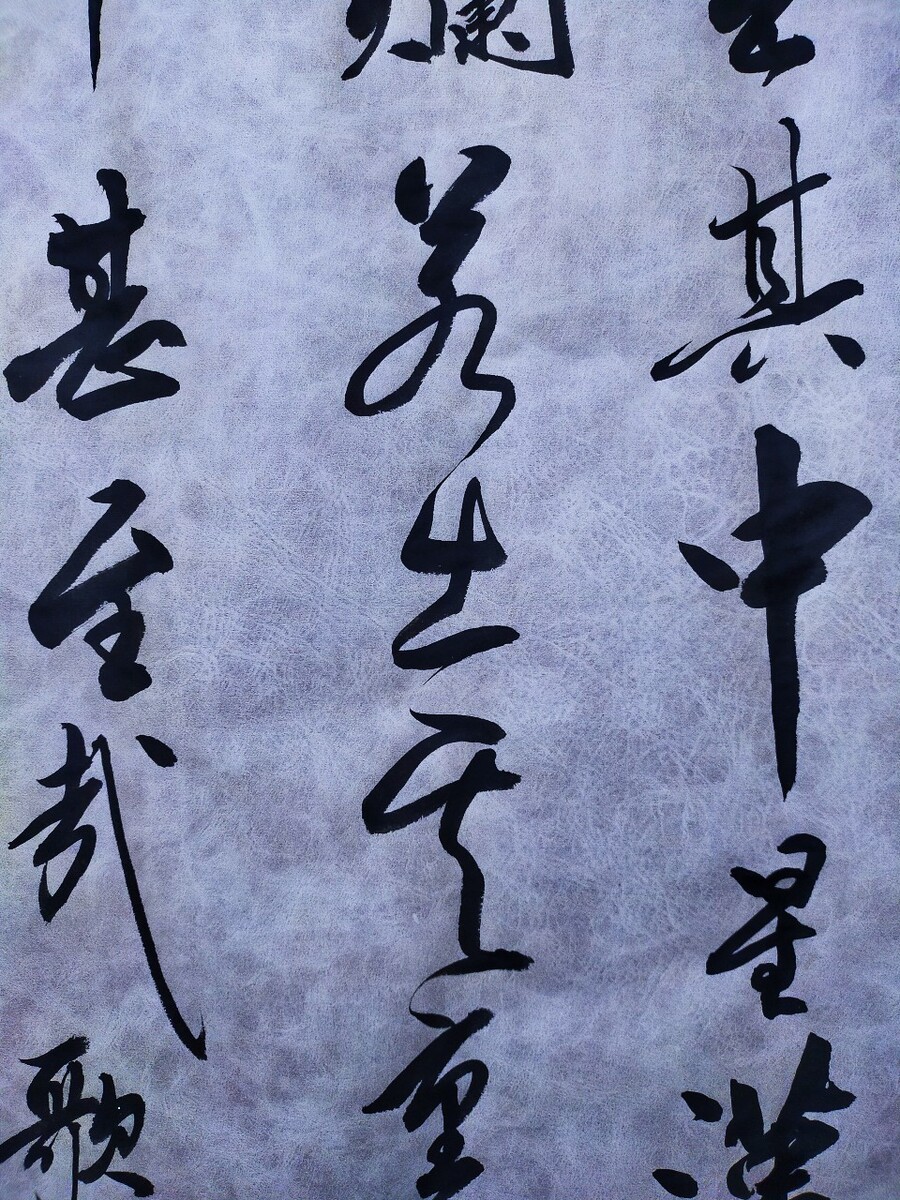 出其中星漢
爛若出其里
甚至哉歌